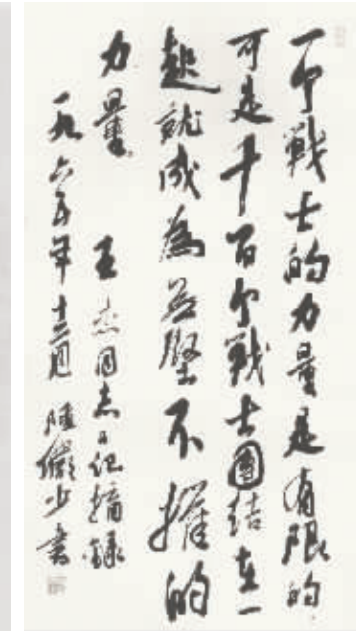 一个戰士的力量是有限的
可是千百个戰士團结在一
起就成為无堅不摧的
力量 王杰同志日记摘錄
一九六五年十二月 陸儼少書